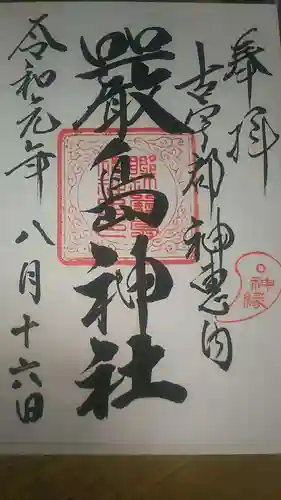 奉拝
古宇郡神恵内
嚴島神社
令和元年八月十六日
神縁